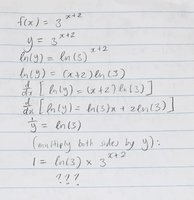 f(x) = 3^{x+2}
y = 3^{x+2}
ln(y) = ln(3)^{x+2}
ln(y) = (x+2) ln(3)
d/dx [ ln(y) = (x+2) ln(3) ]
d/dx [ ln(y) = ln(3)x + 2ln(3) ]
1/y = ln(3)
(multiply both sides by y):
1 = ln(3) × 3^{x+2}
???